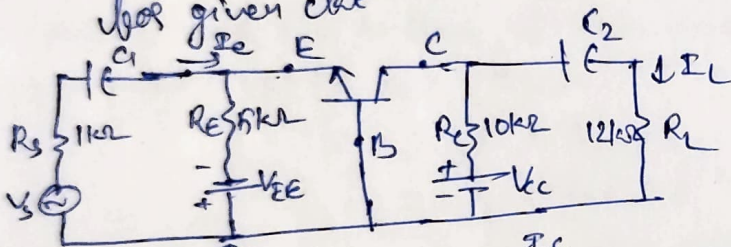 for given
C1 Ie E C C2
↓ IL
RS 1kΩ RE 5kΩ B RC 10kΩ 12kΩ RL
- VEE +
+ VCC -
VS ~